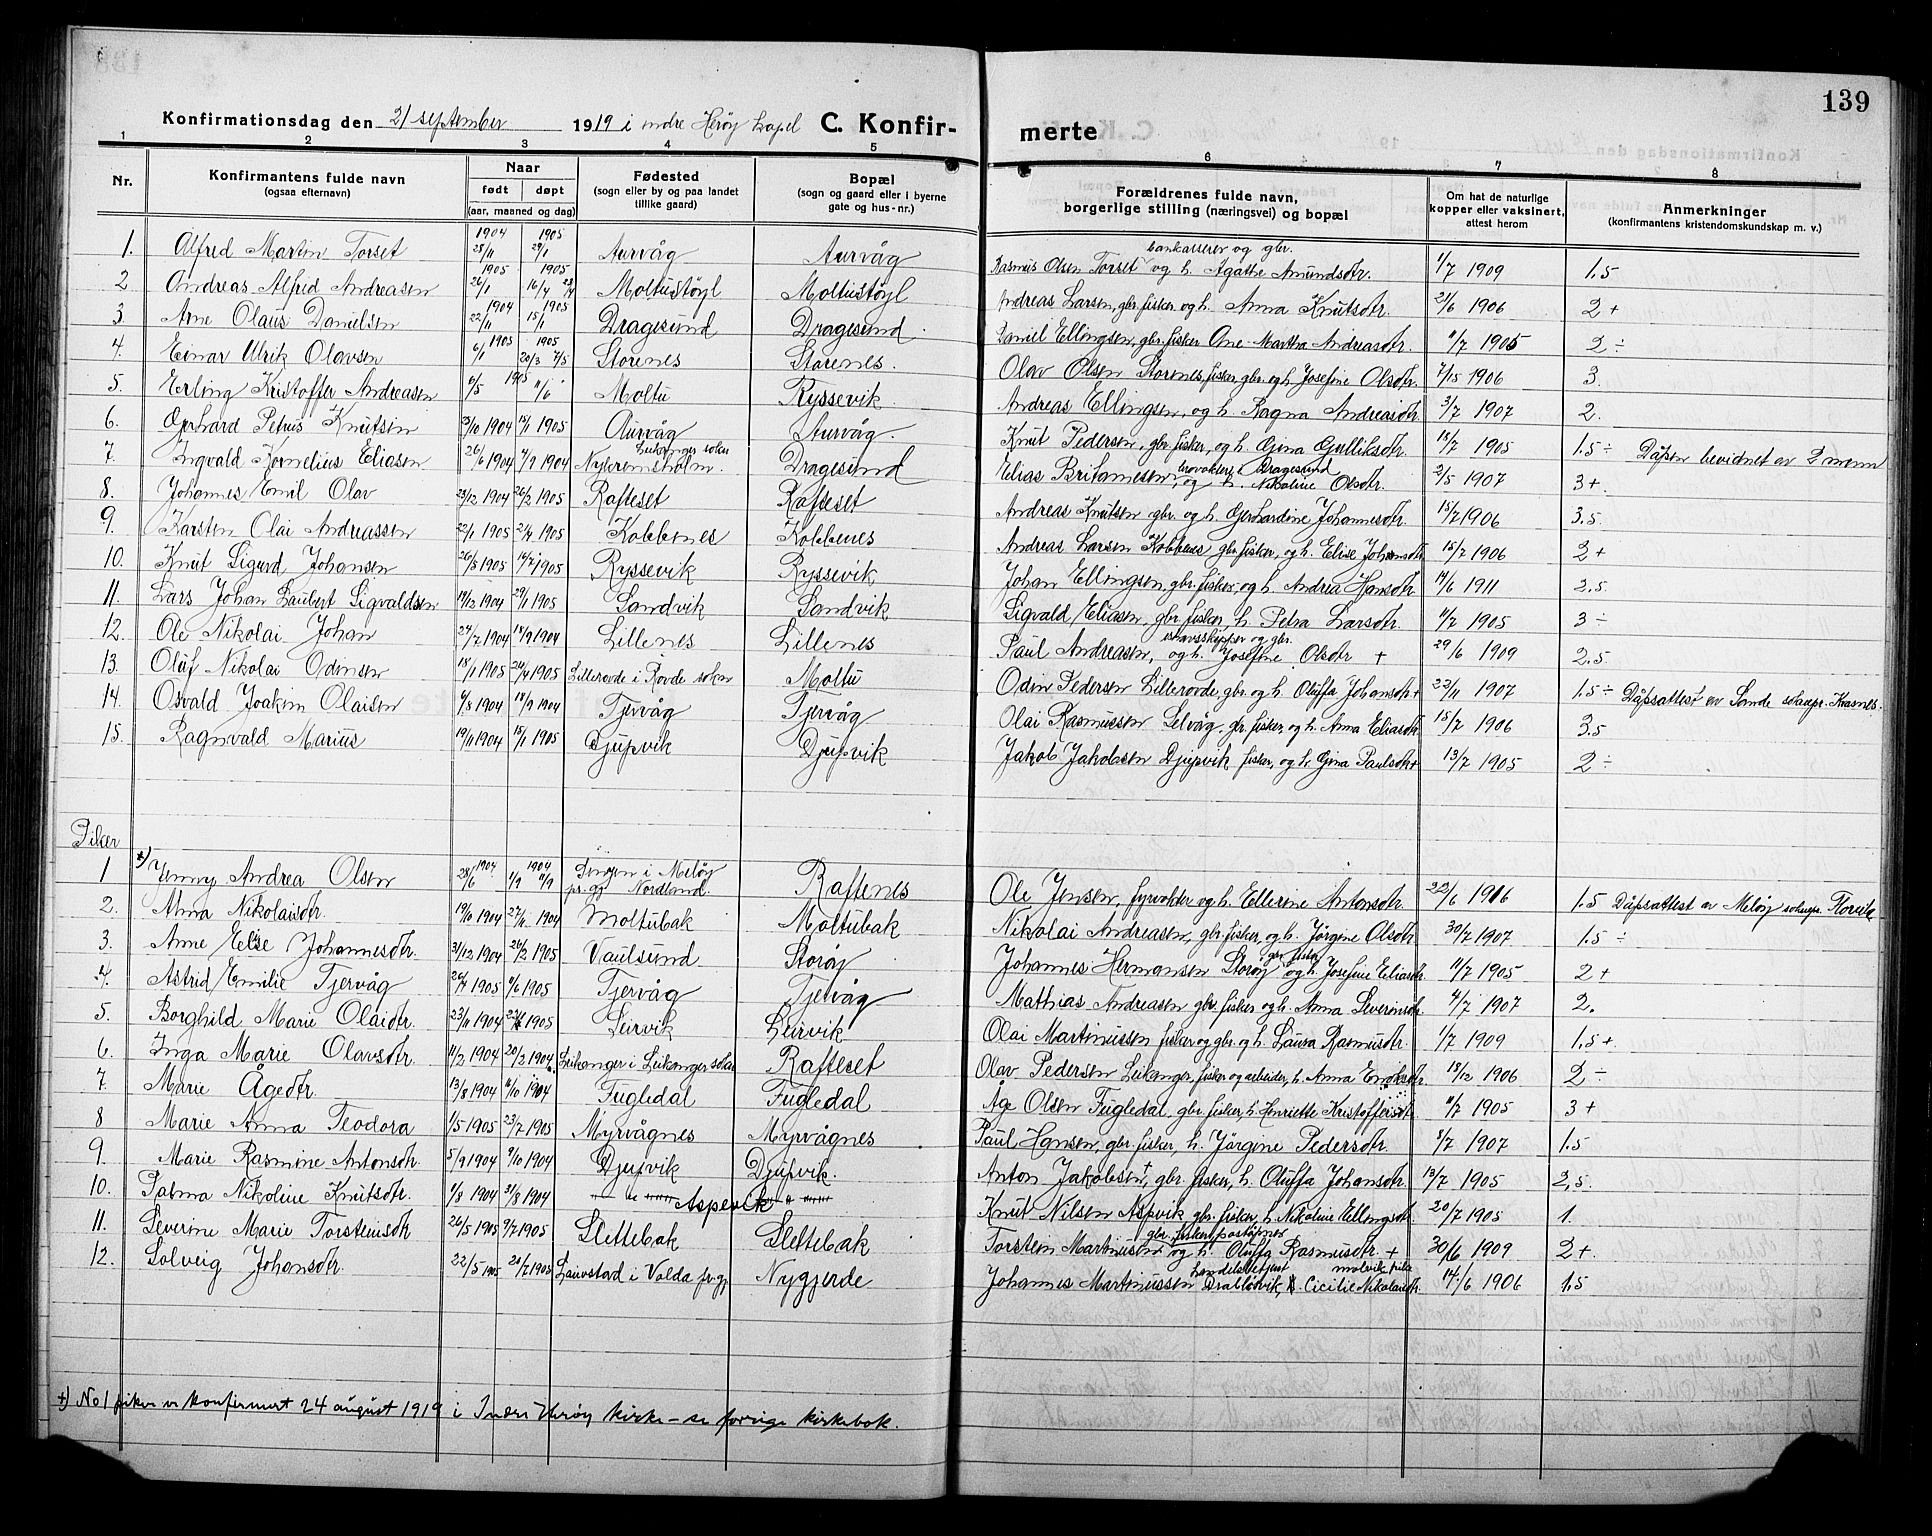 139
Konfirmationsdag den 21 september 1919 i indre Herøy kapel C. Konfir- merte
1 2 3 4 5 6 7 8
Nr. Konfirmantens fulde navn (ogsaa efternavn) Naar født døpt (aar, maaned og dag) Fødested (sogn eller by og paa landet tillike gaard) Bopæl (sogn og gaard eller i byerne gate og hus-nr.) Forældrenes fulde navn, borgerlige stilling (næringsvei) og bopæl Om hat de naturlige kopper eller vaksinert, attest herom Anmerkninger (konfirmantens kristendomskundskap m. v.)
1. Alfred Martin Torset 1904 28/11 1905 29/1 Aurvåg Aurvåg Rasmus Olsen Torset bankasserer og gbr. og h. Agathe Amundsdtr. 1/7 1909 1.5
2 Andreas Alfred Andreasen 1905 26/1 1905 16/4 23/4 Moltustøyl Moltustøyl Andreas Larsen, gbr. fisker og h. Anna Knutsdtr. 2/6 1906 2+
3 Arne Olaus Danielsen 1904 22/11 1905 15/1 Dragesund Dragesund. Daniel Ellingsen, gbr. fisker Ane Martha Andreasdtr. 11/7 1905 2÷
4. Einar Ulrik Olavsen 1905 6/1 1905 20/3 7/5 Storenes Storenes. Olav Olsen Storenes, fisker, gbr. og h. Josefine Olsdtr. 7/15 1906 3.
5. Erling Kristoffer Andreasen 6/5 1905 11/6 Moltu Ryssevik Andreas Ellingsen, og h. Ragna Andreasdtr. 3/7 1907 2.
6. Gerhard Petrus Knutsen 23/10 1904 15/1 1905 Aurvåg Aurvåg. Knut Pedersen, gbr. fisker, og h. Gina Gulliksdtr. 18/7 1905 1.5÷
7. Ingvald Kornelius Eliasen 26/6 1904 4/9 1904 Leikanger sokn Nykremsholm. Dragesund Elias Britanussen, Dragesund og h. Nikoline Olsdtr. 2/5 1907 3+. Dåpen bevidnet av 2 menn
8. Johannes Emil Olav 23/12 1904 26/2 1905 Rafteset Rafteset Andreas Knutsen gbr. og h. Gerhardine Johannesdtr. 15/7 1906 3.5.
9. Karsten Olai Andreassen 22/1 1905 24/4 1905 Kobbenes Kobbenes Andreas Larsen Kobbenes gbr. fisker, og h. Elise Johansdtr. 15/7 1906 2+
10. Knut Sigurd Johansen 26/5 1905 14/7 1905 Ryssevik Ryssevik Johan Ellingsen, gbr. fisker, og h. Andrea Hansdtr. 14/6 1911 2.5.
11. Lars Johan Laubert Sigvaldsen 14/12 1904 29/1 1905 Sandvik Sandvik Sigvald Eliasen, gbr. fisker h. Petra Larsdtr. 11/7 1905 3÷
12. Ole Nikolai Johan 24/7 1904 18/9 1904 Lillenes Lillenes Paul Andreasen, ishavsskipper og gbr. og h. Josefine Olsdtr + 29/6 1909 2.5
13. Olaf Nikolai Odinsen 18/1 1905 24/4 1905 Lillerovde i Rovde sokn Moltu Odin Pedersen Lillerovde, gbr. og h. Oluffa Johansdtr+ 23/11 1907 1.5÷ Dåpsattest av Sande soknepr.
14. Osvald Joakim Olaisen 6/8 1904 18/9 1904 Tjervåg Tjervåg Olai Rasmussen Selvåg, gbr. fisker, og h. Anna Eliasdtr. 15/7 1906 3.5
15. Ragnvald Marius 19/11 1904 15/1 1905 Djupvik Djupvik Jakob Jakobsen Djupvik fisker, og h. Gina Paulsdtr 13/7 1905 2÷
Piker
1 +) Jenny Andrea Olsen 1904 28/6 1904 4/9 11/9 i Meløy pr.gj. Nordland. Raftenes Ole Jensen, fyrvokter og h. Ellerine Antonsdtr. 22/6 1916 1.5 Dåpsattest av Meløy soknepr.
2. Alma Nikolaisdtr. 19/10 1904 27/11 1904 Moltubak Moltubak Nikolai Andreasen, gbr. fisker, og h. Jørgine Olsdtr. 30/7 1907 1.5÷
3. Anne Else Johannesdtr. 31/12 1904 26/2 1905 Vaulsund Storøy Johannes Hermansen Storøy gbr. fisker og h. Josefine Eliasdtr. 11/7 1905 2+
4. Astrid Emilie Tjervåg 26/4 1905 11/6 1905 Tjervåg Tjervåg Mathias Andreasen gbr. fisker og h. Anna Severinsdtr. 4/7 1907 2.
5. Borghild Marie Olaidtr. 23/11 1904 22/1 1905 Leirvik Leirvik Olai Martinussen fisker og gbr. og h. Laura Rasmusdtr. 1/7 1909 1.5+.
6. Inga Marie Olavsdtr. 11/2 1904 20/2 1904 Leikanger i Leikanger sokn Rafteset Olav Pedersen Leikanger, fisker og arbeider, h. Anna Enoksdtr. 18/12 1906 2÷
7. Marie Ågedtr. 13/8 1904 16/10 1904 Fugledal Fugledal Åge Olsen Fugledal gbr. fisker, h. Henriette Kristoffersdtr. 11/7 1905 3+
8 Marie Anna Teodora 1/5 1905 23/7 1905 Myrvågnes Myrvågnes Paul Hansen, gbr. fisker, h. Jørgine Pedersdtr. 8/7 1907 1.5
9. Marie Rasmine Antonsdtr. 5/9 1904 9/10 1904 Djupvik Djupvik. Anton Jakobsen+, gbr. fisker, h. Oluffa Johansdtr. 13/7 1905 2,5.
10. Palma Nikoline Knutsdtr. 1/8 1904 31/8 1904 Aspevik Knut Nilsen Aspvik gbr. fisker, h. Nikoline Ellingsdtr. 20/7 1905 1.
11. Severine Marie Torsteinsdtr. 26/5 1905 9/7 1905 Slettebak Slettebak Torstein Martinussen gbr. fisker, poståpner og h. Oluffa Rasmusdtr. + 30/6 1909 2+.
12. Solveig Johansdtr. 22/5 1905 20/7 1905 Lauvstad i Volda pr.gj. Nygjerde Johannes Martinussen handelsbetjent Drabløsvik, h. Cicilie Nikolaisdtr. 14/6 1906 1.5
+) No 1 piker er konfirmert 24 august 1919 i Indre Herøy kirke – se forrige kirkebok.